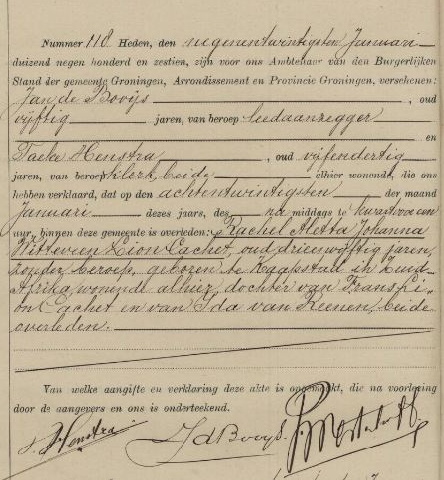 Nummer 118 Heden, den negenentwintigsten Januari
duizend negen honderd en zestien, zijn voor ons Ambtenaar van den Burgerlijken
Stand der gemeente Groningen, Arrondissement en Provincie Groningen, verschenen:
Jan de Booijs, oud
vijftig jaren, van beroep leedaanzegger
en
Taeke Henstra, oud vijfendertig
jaren, van beroep klerk, beide alhier wonende, die ons
hebben verklaard, dat op den achtentwintigsten der maand
Januari dezes jaars, des na middags te kwart voor een
uur, binnen deze gemeente is overleden: Rachel Aletta Johanna
Witteveen Lion Cachet, oud drieenvijftig jaren,
zonder beroep, geboren te Kaapstad in Zuid-
Afrika, wonende alhier, dochter van Frans Li-
on Cachet en van Ida van Reenen, beide
overleden.
Van welke aangifte en verklaring deze akte is opgemaakt, die na voorlezing
door de aangevers en ons is onderteekend.
T. Henstra J d Booys.